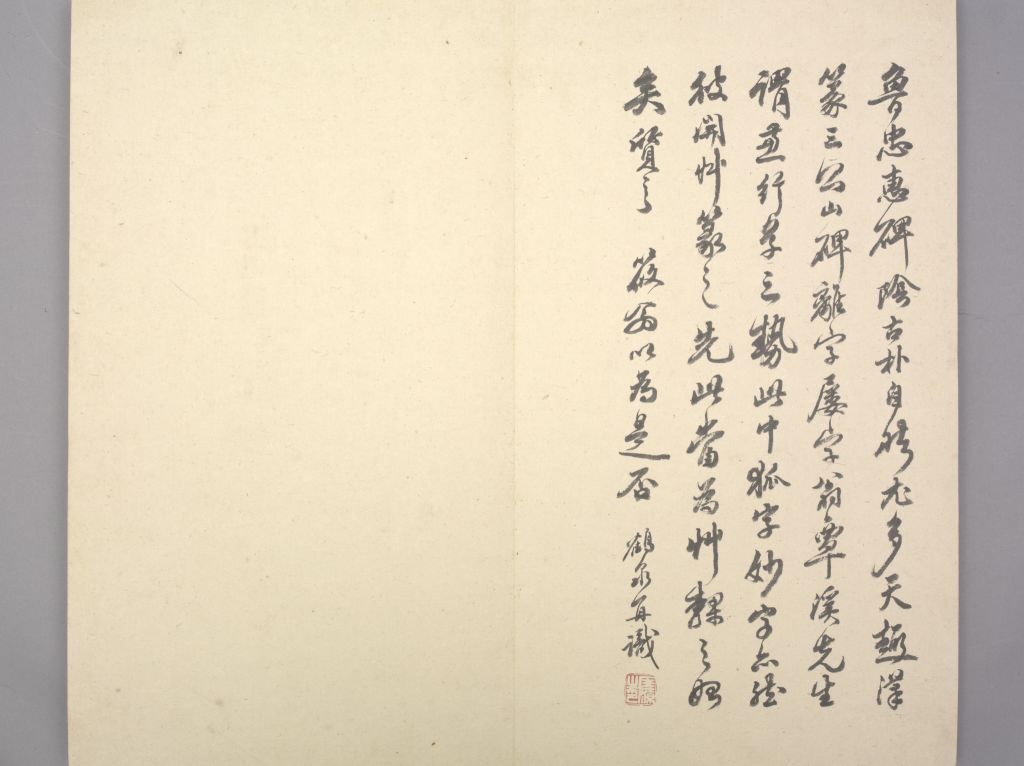 魯忠惠碑陰古朴自尤多天趣漢
篆三公山碑離字屡字翁覃溪先生
謂兼行草之勢此中狐字妙字亦然
彼開艸篆之先此當為艸隸之始
矣質之 筱以為是否 鶴泉再識